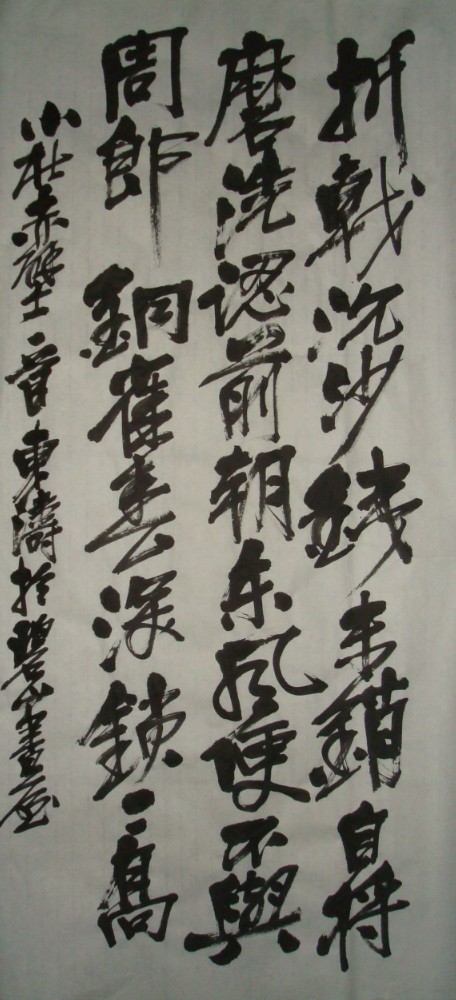 折戟沉沙鐵未銷自將
磨洗認前朝东风便不與
周郎銅雀春深鎖二喬
小杜赤壁一首東濤於書屋